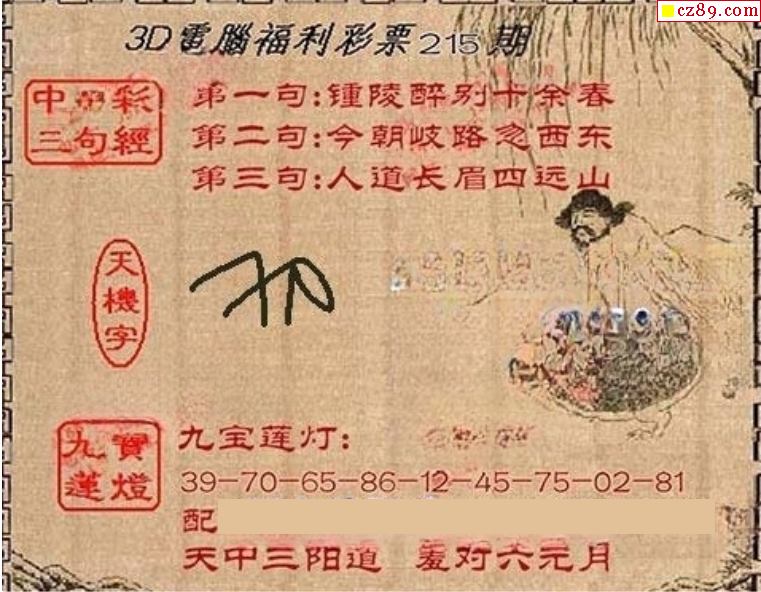 cz89.com
3D電腦福利彩票215期
中彩
三句經
第一句:锺陵醉别十余春
第二句:今朝岐路忽西东
第三句:人道长眉四远山
天機字
九寶
蓮燈
九宝莲灯:
39-70-65-86-12-45-75-02-81
配
天中三阳道 对六元月